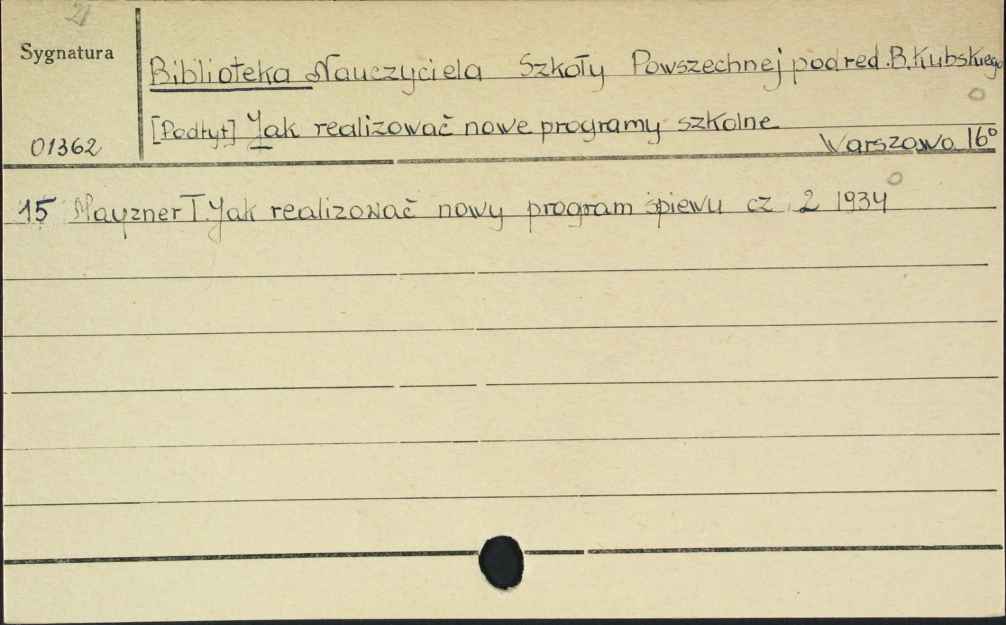 21
Sygnatura
Biblioteka Nauczyciela Szkoły Powszechnej pod red. B. Kubskiego
[Podtyt] Jak realizować nowe programy szkolne
01362
Warszawa 16°
15 Mayzner T. Jak realizować nowy program śpiewu cz. 2 1934